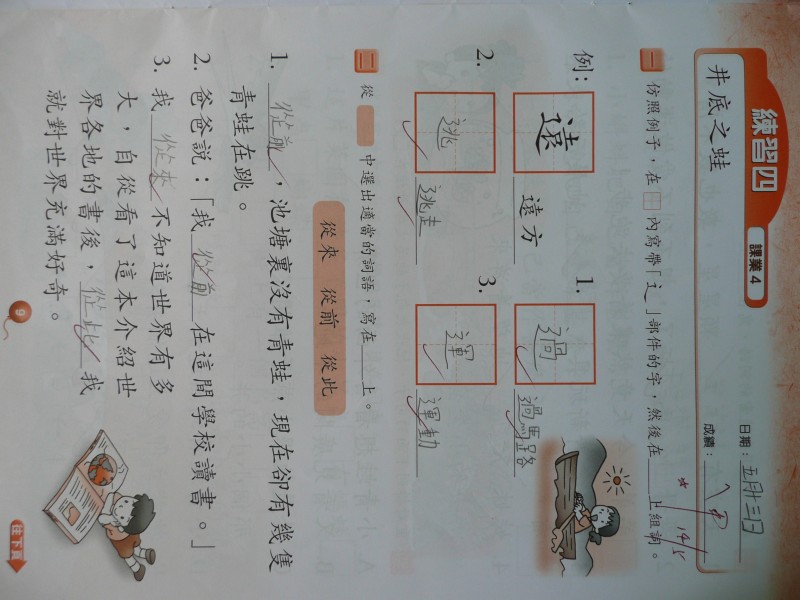 練習四 課業4
井底之蛙
日期：五月十三日
成績：
14/5
一 仿照例子，在 內寫帶「辶」部件的字，然後在 上組詞。
例： 遠 遠方
1. 過 過馬路
2. 逃 逃走
3. 運 運動
二 從 中選出適當的詞語，寫在 上。
從來 從前 從此
1. 從前，池塘裏沒有青蛙，現在卻有幾隻
青蛙在跳。
2. 爸爸說：「我從前在這間學校讀書。」
3. 我從來不知道世界有多
大，自從看了這本介紹世
界各地的書後，從此我
就對世界充滿好奇。
9
往下頁